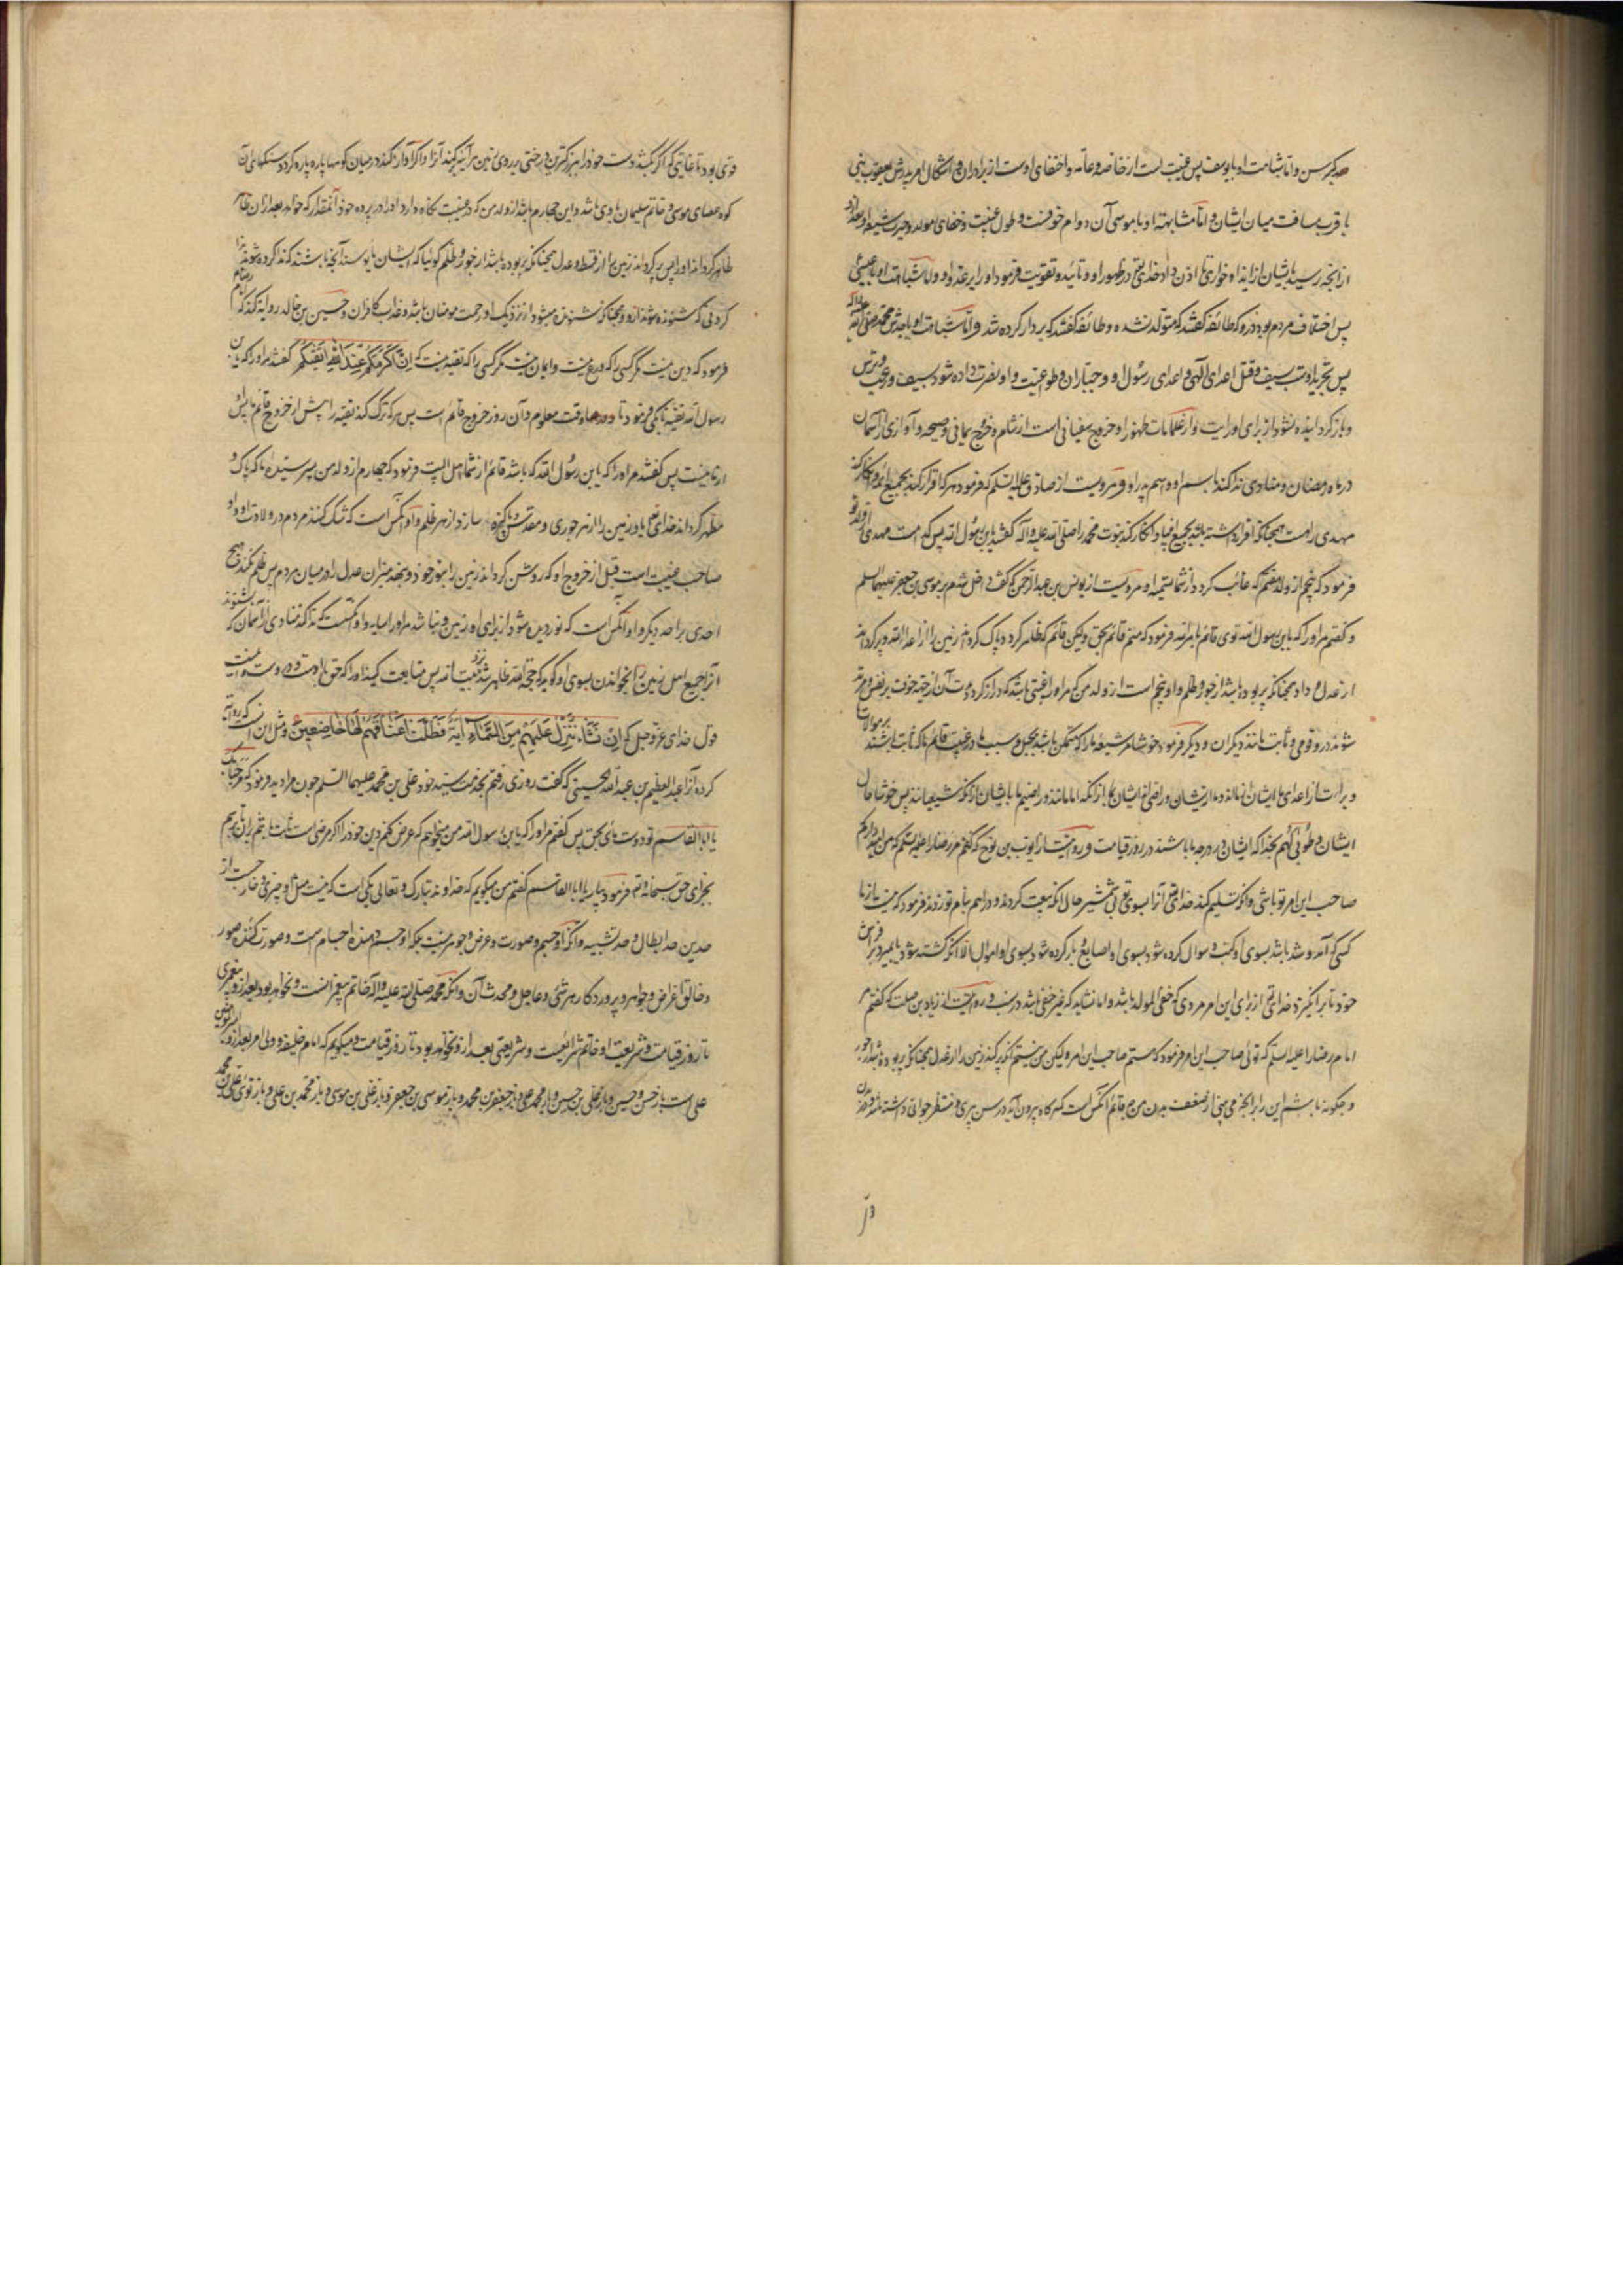 صد کبر سن و اما مشابهت او با یوسف پس غیبت است از خاصه و عامه و اختفای اوست از برادران و اشکال امر بر پدرش یعقوب نبی
با قرب مسافت میان ایشان و اما مشابهت او با موسی آن دوام خوفست و طول غیبت و خفای مولد و حیرت شیعه او بعد از او
از آنچه رسید بایشان از ایذا و خواری تا اذن داد خدای تع در ظهور او و تائید و تقویت فرمود او را بر عدو او و اما مشابهت او با عیسی
پس اختلاف مردم بود در او که طائفه گفتند که متولد نشده و طائفه گفتند که بر دار کرده شد و اما مشابهت او با جدش محمد صلی الله علیه و آله
پس تجرید اوست بسیف و قتل اعدای الهی و اعدای رسول او و جباران و طواغیت و او نصرت داده شود بسیف و رعب و ترس
و باز گردانیده نشود از برای او رایت و از علامات ظهور او خروج سفیانی است از شام و خروج یمانی و صیحه و آوازی از آسمان
در ماه رمضان و منادی ندا کند باسم او و اسم پدر او و مرویست از صادق علیه السلم که فرمود هر که اقرار کند بجمیع ائمه و انکار کند
مهدی را هست همچنانکه اقرار داشته باشد بجمیع انبیا و انکار کند نبوت محمد را صلی الله علیه و آله گفتند یا بن رسول الله پس کدام است مهدی از ولد تو
فرمود که پنجم از ولد هفتم که غائب گردد از شما تسمیه او و مرویست از یونس بن عبد الرحمن که گفت داخل شدم بر موسی بن جعفر علیهما السلم
و گفتم مر او را که یا بن رسول الله توی قائم بامر الله فرمود که منم قائم بحق ولیکن قائم که طاهر گرداند و پاک گرداند زمین را از اعداء الله و پر گرداند
از عدل و داد همچنانکه پر بوده باشد از جور و ظلم او پنجم است از ولد من که مر او را غیبتی باشد که دراز گردد مدت آن از جهة خوف بر نفس و مرتد
شوند در او قومی و ثابت مانند دیگران و دیگر فرمود خوشا مر شیعه ما را که متمسک باشند بحبل و سبب ما در غیبت قائم ما که ثابت باشند بر موالات
و برائت از اعدای ما ایشان از ما اند و ما از یشان و راضی اند ایشان بما از آنکه امامانند و راضییم ما بایشان از آنکه شیعیانند پس خوشا حال
ایشان و طوبی لهم بخدا که ایشان در درجه ما باشند در روز قیامت و روایتست از ایوب بن نوح که گفتم مر رضا را علیه السلم که من امید دارم که
صاحب این امر تو باشی و آنکه تسلیم کند خدای تع آنرا بسوی تو بی شمشیر حال آنکه بیعت کردند و دراهم بنام تو زدند فرمود که نیست از ما
کسی که آمد و شد باشد بسوی او کتب و سوال کرده شود بسوی او اصابع و بار کرده شود بسوی او اموال الا آنکه کشته شود یا بمیرد بر فراش
خود تا بر انگیزد خدای تع از برای این امر مردی که خفی المولد باشد و اما نشاید که غیر خفی باشد در نسب و روایتست از زیاد بن صلت که گفتم مر
امام رضا را علیه السلم که توئی صاحب این امر فرمود که هستم صاحب این امر ولیکن من نیستم آنکه پر کند زمین را از عدل همچنانکه پر بوده باشد از جور
و چگونه باشم این را بر آنچه می بینی از ضعف بدن من و قائم آنکس است که هر گاه بیرون آید در سن پیری و منظر جوانی داشته باشد و در بدن
قوی بود تا غایتی که اگر بکشد دست خود را بر بزرگترین درختی بر روی زمین هر آینه بر کند آنرا و اگر آواز کند در میان کوهها پاره پاره گردد سنگهای آن
کوه عصای موسی و خاتم سلیمان با وی باشد و این چهارم باشد از ولد من که در غیبت نگاه دارد او را در پرده خود آنمقدار که خواهد بعد از آن ظاهر
ظاهر گرداند او را پس پر گرداند زمین را از قسط و عدل همچنانکه پر بوده باشد از جور و ظلم گوئیا که ایشان مایوسند آنچه باشند ندا کرده شوند بندا
کردنی که شنونده شود از دور همچنانکه شنونده میشود از نزدیک او رحمت مومنان باشد و عذاب کافران و حسین بن خالد روایه کند که امام رضا
فرمود که دین نیست مگر کسی را که ورع نیست و ایمان نیست مگر کسی را که تقیه نیست که اِنَّ اَکرَمَکُم عِندَ اللّٰهِ اَتقٰیکُم گفتند مر او را که یا بن
رسول الله تقیه تا بکی فرمود تا وقت معلوم و آن روز خروج قائم است پس هر که ترک کند تقیه را پیش از خروج قائم ما پس او
از ما نیست پس گفتند مر او را که یا بن رسول الله که باشد قائم از شما اهل البیت فرمود که چهارم از ولد من پسر سیده اماء که پاک و
مطهر گرداند خدای تع باو زمین را از هر جوری و مقدس و پاکیزه سازد از هر ظلم و او آنکس است که شک کنند مردم در ولادت او و او
صاحب غیبت است قبل از خروج او که روشن گرداند زمین را بنور خود و بنهد میزان عدل را در میان مردم پس ظلم نکند هیچ
احدی بر احد دیگر و او آنکس است که نوردیده شود از برای او زمین و نباشد مر او را سایه و او آنکسست که ندا کند منادی از آسمان که بشنوند
آنرا جمیع اهل زمین را بخواندن بسوی او گوید که حجة الله ظاهر شد نزد بیت الله پس متابعت کنید او را که حق با اوست و در اوست و اینست
قول خدای عز و جل که اِن نَشَأ نُنَزِّل عَلَیهِم مِنَ السَّمَآءِ اٰیَةً فَظَلَّت اَعنَاقُهُم لَهَا خَاضِعِینَ و مثل این است که روایه
کرده آنرا عبد العظیم بن عبد الله الحسینی که گفت روزی رفتم بخدمت سید خود علی بن محمد علیهما السلم چون مرا دید فرمود که مرحبا بک
یا ابا القاسم تو دوست مائی بحق پس گفتم مر او را که یا بن رسول الله من میخواهم که عرض کنم دین خود را اگر مرضی است ثابت باشم بر آن تا برسم
بخدای حق سبحانه و تع فرمود بیار یا ابا القاسم گفتم من میگویم که خداوند تبارک و تعالی یکی است که نیست مثل او چیزی و خارجست از
حدین حد ابطال و حد تشبیه و آنکه او جسم و صورت و عرض و جوهر نیست بلکه او جسم دهنده اجسام است و صورت کننده صور
و خالق اعراض و جواهر و پروردگار هر شئ و جاعل و محدث آن و آنکه محمد صلی الله علیه و اله خاتم پیغمبرانست و نخواهد بود بعد از و پیغمبری
تا روز قیامت و شریعت او خاتم شرائعست و شریعتی بعد از و نخواهد بود تا روز قیامت و میگویم که امام و خلیفه و ولی امر بعد از و امیر المومنین
علی است باز حسن و حسین و باز علی بن حسین و باز محمد علی و باز جعفر بن محمد و باز موسی بن جعفر و باز علی بن موسی و باز محمد بن علی و باز توی علی بن محمد